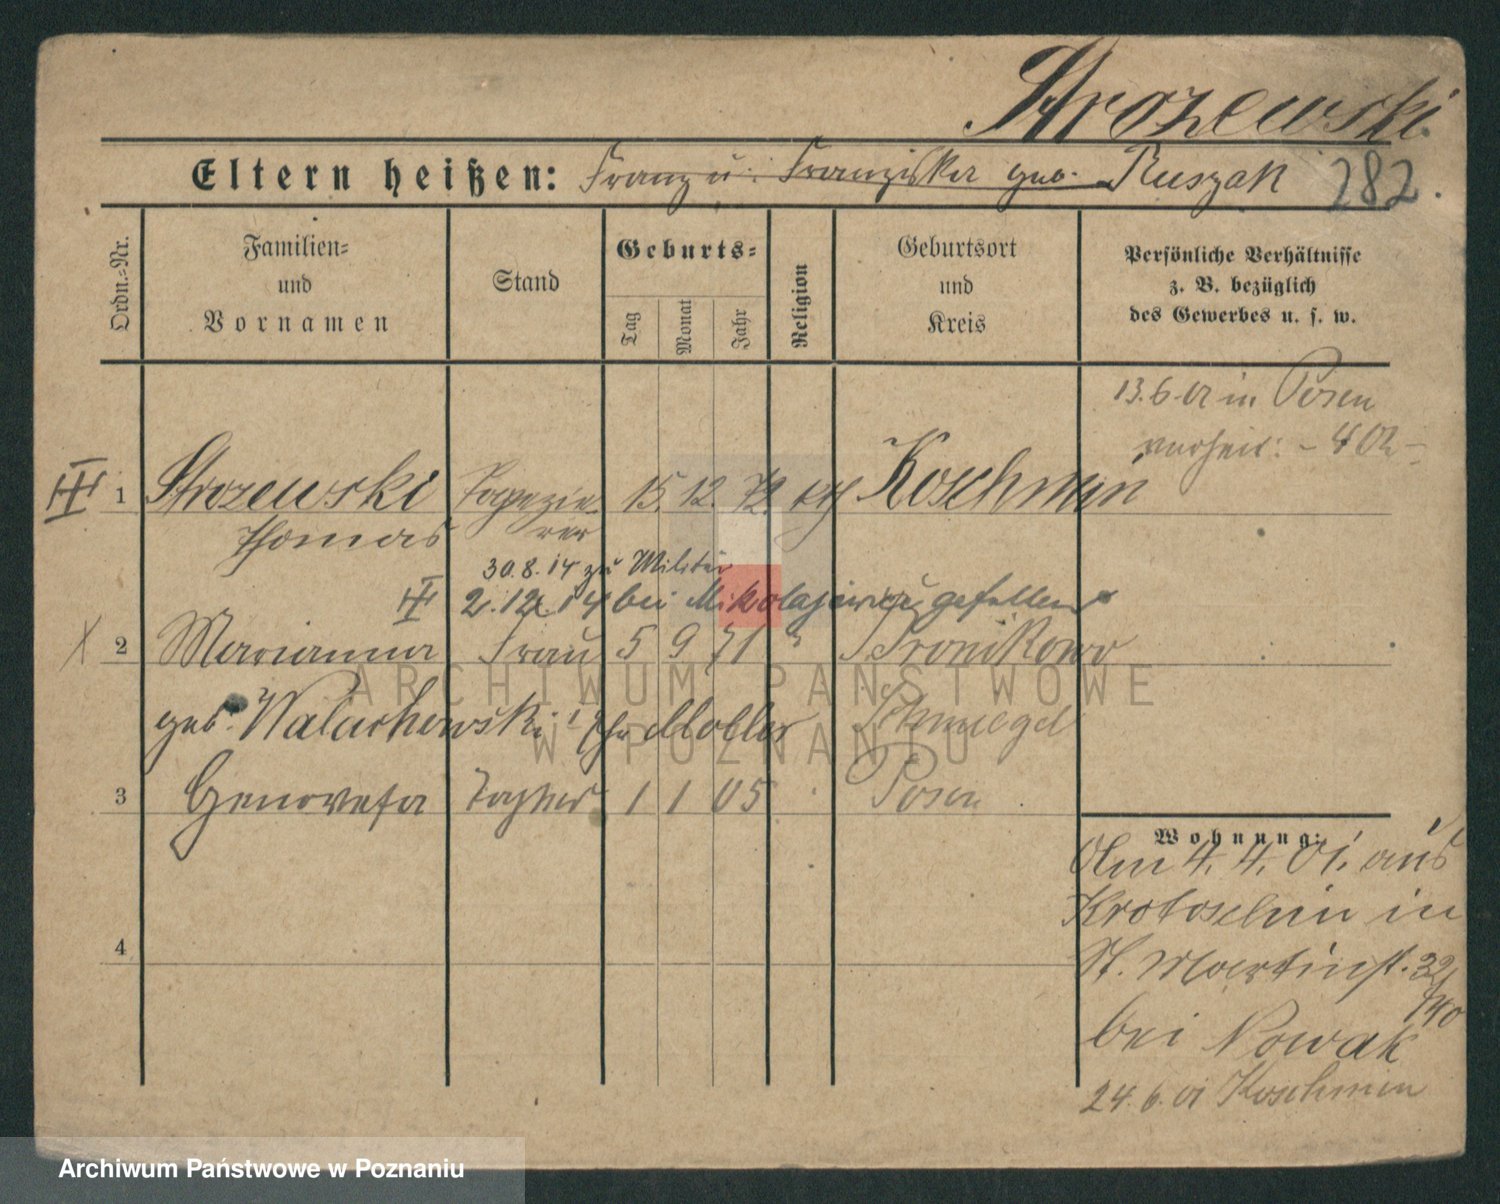 Strozewski
Eltern heißen: Franz u. Franziska geb. Ruszak 282.
Ordn.-Nr.
Familien-
und
Vornamen
Stand
Geburts-
Tag
Monat
Jahr
Religion
Geburtsort
und
Kreis
Persönliche Verhältnisse
z. B. bezüglich
des Gewerbes u. s. w.
13.6.01 in Posen
verheir:
1 Strozewski Tapezie- 15. 12. 72 kth Koschmin
Thomas rer
30.8.14 zu Militär
2.12.14 bei Mikolajewice gefallen
2 Marianna Frau 5 9 71 " Bronikowo
geb. Walachowski Schmiegel
3 Genovefa Tochter 1 1 05 Posen
4
Wohnung:
Am 4. 4. 01. aus
Krotoschin in
St. Martinst. 32/
40
bei Nowak
24.6.01 Koschmin
ARCHIWUM PAŃSTWOWE
W POZNANIU
Archiwum Państwowe w Poznaniu